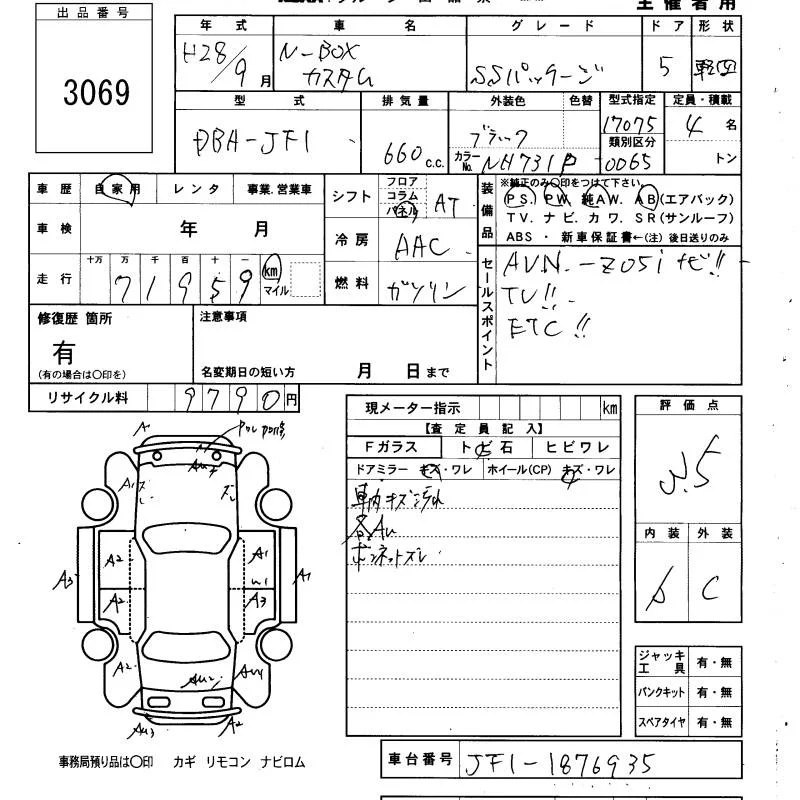 主催者用
出品番号
3069
年式 車名 グレード ドア 形状
H28/9月 N-BOX カスタム SSパッケージ 5
型式 排気量 外装色 色替 型式指定 定員・積載
DBA-JF1 660c.c. ブラック 17075 4名
カラーNo. NH731P 類別区分 0065 トン
車歴 自家用 レンタ 事業.営業車
シフト フロア コラム パネル AT
車検 年 月
冷房 AAC
走行 十万 万 千 百 十 一
71959 km マイル
燃料 ガソリン
装備品 ※純正のみ〇印をつけて下さい。
PS. PW. 純AW. AB(エアバック)
TV. ナビ. カワ. SR(サンルーフ)
ABS ・ 新車保証書←(注) 後日送りのみ
セールスポイント
AVN.-Z05iナビ!!
TV!!
ETC!!
修復歴 箇所
有
(有の場合は〇印を)
注意事項
名変期日の短い方 月 日まで
リサイクル料 9790円
現メーター指示 km
【査定員記入】
Fガラス トビ石 ヒビワレ
ドアミラー キズ・ワレ ホイール(CP) キズ・ワレ
各AU
ボンネットズレ
評価点
3.5
内装 外装
C
A1
A2
A1
A2
A3
A3
A1
AU2
AU1
AU3
A2
ジャッキ工具 有・無
パンクキット 有・無
スペアタイヤ 有・無
事務局預り品は〇印 カギ リモコン ナビロム
車台番号 JF1-1876935